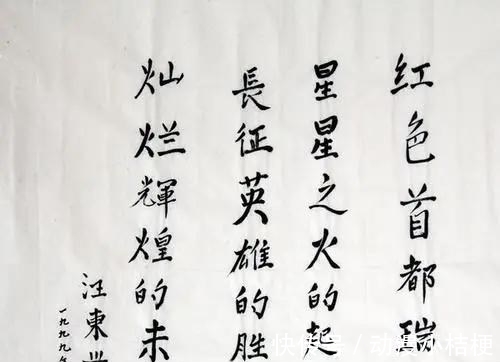 红色首都瑞
星星之火的起
長征英雄的胜
灿烂輝煌的未
汪東兴
一九九九年
快传号 / 动漫小桔梗